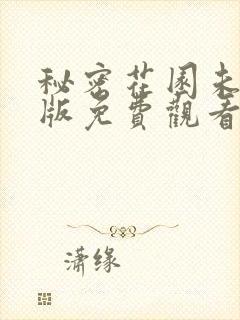 秘密花园未
版免費觀看
潇缘